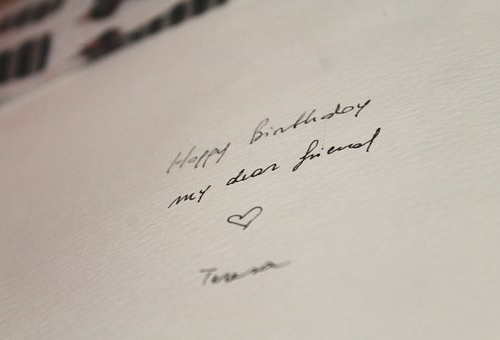 Happy Birthday
my dear friend
Teresa